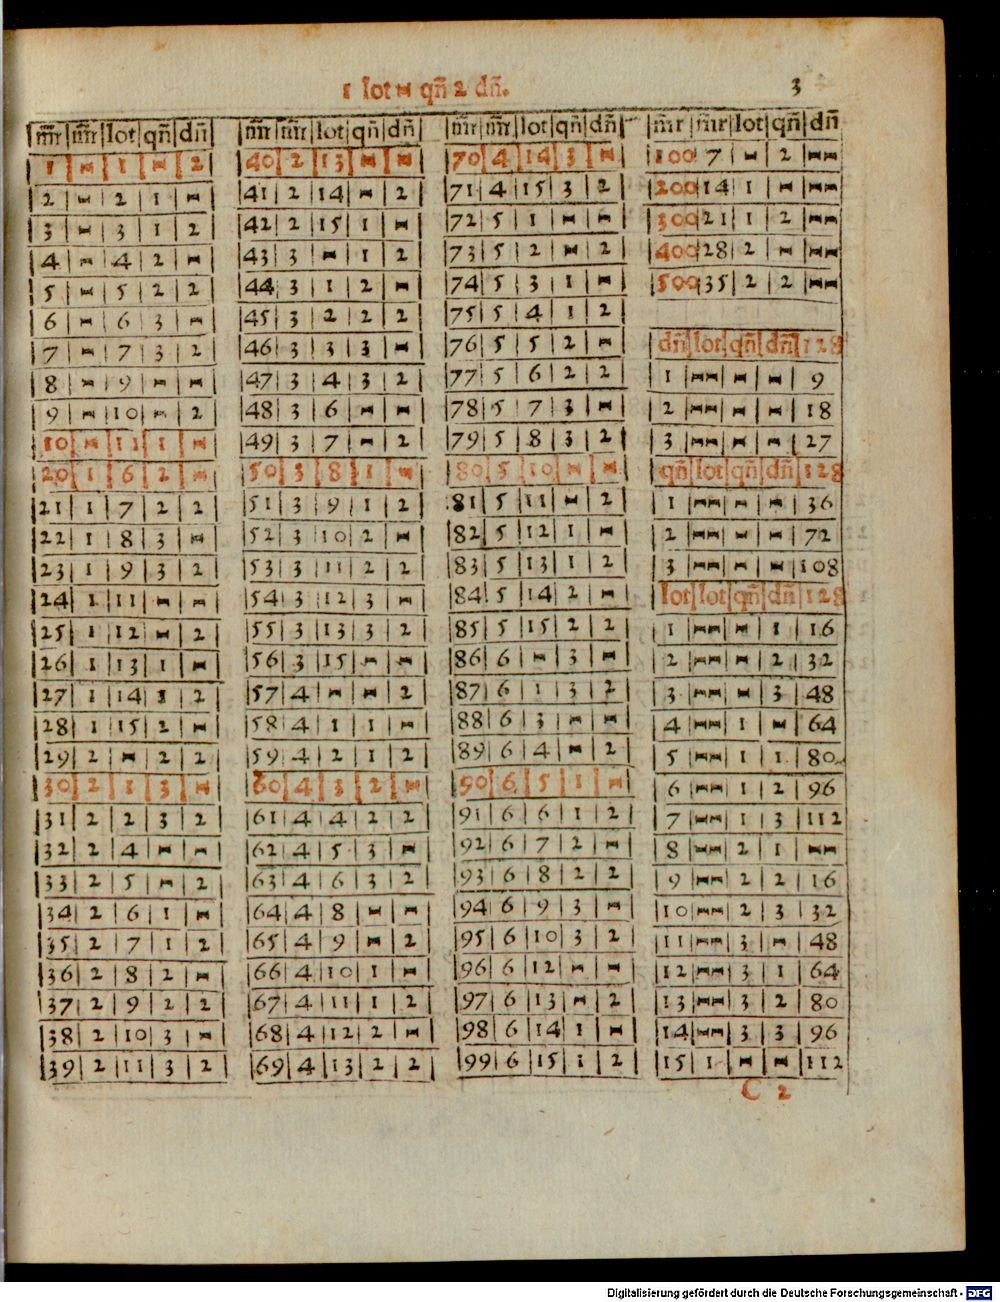 1 lot - qñ 2 dñ.
3
m̃r m̃r lot qñ dñ
1 - 1 - 2
2 - 2 1 -
3 - 3 1 2
4 - 4 2 -
5 - 5 2 2
6 - 6 3 -
7 - 7 3 2
8 - 9 - -
9 - 10 - 2
10 - 11 1 -
20 1 6 2 -
21 1 7 2 2
22 1 8 3 -
23 1 9 3 2
24 1 11 - -
25 1 12 - 2
26 1 13 1 -
27 1 14 1 2
28 1 15 2 -
29 2 - 2 2
30 2 1 3 -
31 2 2 3 2
32 2 4 - -
33 2 5 - 2
34 2 6 1 -
35 2 7 1 2
36 2 8 2 -
37 2 9 2 2
38 2 10 3 -
39 2 11 3 2
m̃r m̃r lot qñ dñ
40 2 13 - -
41 2 14 - 2
42 2 15 1 -
43 3 - 1 2
44 3 1 2 -
45 3 2 2 2
46 3 3 3 -
47 3 4 3 2
48 3 6 - -
49 3 7 - 2
50 3 8 1 -
51 3 9 1 2
52 3 10 2 -
53 3 11 2 2
54 3 12 3 -
55 3 13 3 2
56 3 15 - -
57 4 - - 2
58 4 1 1 -
59 4 2 1 2
60 4 3 2 -
61 4 4 2 2
62 4 5 3 -
63 4 6 3 2
64 4 8 - -
65 4 9 - 2
66 4 10 1 -
67 4 11 1 2
68 4 12 2 -
69 4 13 2 2
m̃r m̃r lot qñ dñ
70 4 14 3 -
71 4 15 3 2
72 5 1 - -
73 5 2 - 2
74 5 3 1 -
75 5 4 1 2
76 5 5 2 -
77 5 6 2 2
78 5 7 3 -
79 5 8 3 2
80 5 10 - -
81 5 11 - 2
82 5 12 1 -
83 5 13 1 2
84 5 14 2 -
85 5 15 2 2
86 6 - 3 -
87 6 1 3 2
88 6 3 - -
89 6 4 - 2
90 6 5 1 -
91 6 6 1 2
92 6 7 2 -
93 6 8 2 2
94 6 9 3 -
95 6 10 3 2
96 6 12 - -
97 6 13 - 2
98 6 14 1 -
99 6 15 1 2
m̃r m̃r lot qñ dñ
100 7 - 2 --
200 14 1 - --
300 21 1 2 --
400 28 2 - --
500 35 2 2 --
dñ lot qñ dñ 128
1 -- - - 9
2 -- - - 18
3 -- - - 27
qñ lot qñ dñ 128
1 -- - - 36
2 -- - - 72
3 -- - - 108
lot lot qñ dñ 128
1 -- - 1 16
2 -- - 2 32
3 -- - 3 48
4 -- 1 - 64
5 -- 1 1 80
6 -- 1 2 96
7 -- 1 3 112
8 -- 2 1 --
9 -- 2 2 16
10 -- 2 3 32
11 -- 3 - 48
12 -- 3 1 64
13 -- 3 2 80
14 -- 3 3 96
15 1 - - 112
C 2
Digitalisierung gefördert durch die Deutsche Forschungsgemeinschaft - DFG